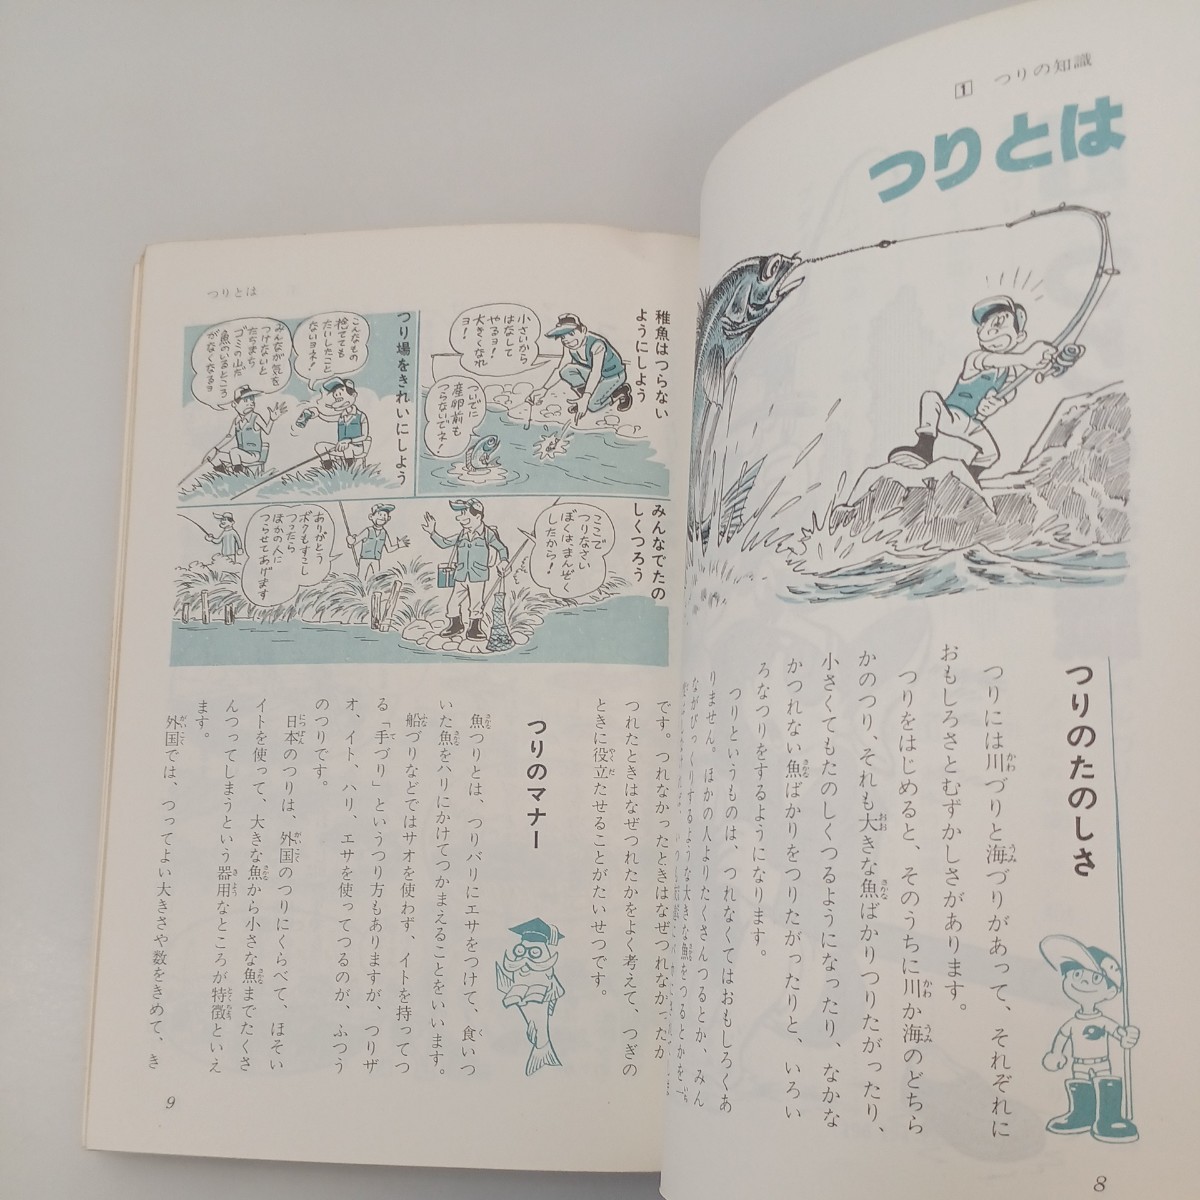 1 つりの知識
つりとは
つりのたのしさ
つりには川づりと海づりがあって、それぞれに
おもしろさとむずかしさがあります。
つりをはじめると、そのうちに川か海のどちら
かのつり、それも大きな魚ばかりつりたがったり、
小さくてもたのしくつるようになったり、なかな
かつれない魚ばかりをつりたがったりと、いろい
ろなつりをするようになります。
つりというものは、つれなくてはおもしろくあ
りません。ほかの人よりたくさんつるとか、みん
ながびっくりするような大きな魚をつるとかを
8
つりとは
稚魚はつらない
ようにしよう
小さいから
はなして
やるョ!
大きくなれ
ョ!
ついでに
産卵前も
つらないでネ!
つり場をきれいにしよう
こんなもの
捨てても
たいしたこと
ないョネ!
みんなが気を
つけないと
たちまち
ゴミの山だ
魚のいるところ
がなくなるョ
みんなでたの
しくつろう
ここで
つりなさい
ぼくは、まんぞく
したから!
ありがとう
ボクもすこし
つったら
ほかの人に
つらせてあげます
です。つれなかったときはなぜつれなかったか
つれたときはなぜつれたかをよく考えて、つぎの
ときに役立たせることがたいせつです。
つりのマナー
魚つりとは、つりバリにエサをつけて、食いつ
いた魚をハリにかけてつかまえることをいいます。
船づりなどではサオを使わず、イトを持ってつ
る「手づり」というつり方もありますが、つりザ
オ、イト、ハリ、エサを使ってつるのが、ふつう
のつりです。
日本のつりは、外国のつりにくらべて、ほそい
イトを使って、大きな魚から小さな魚までたくさ
んつってしまうという器用なところが特徴といえ
ます。
外国では、つってよい大きさや数をきめて、き
9